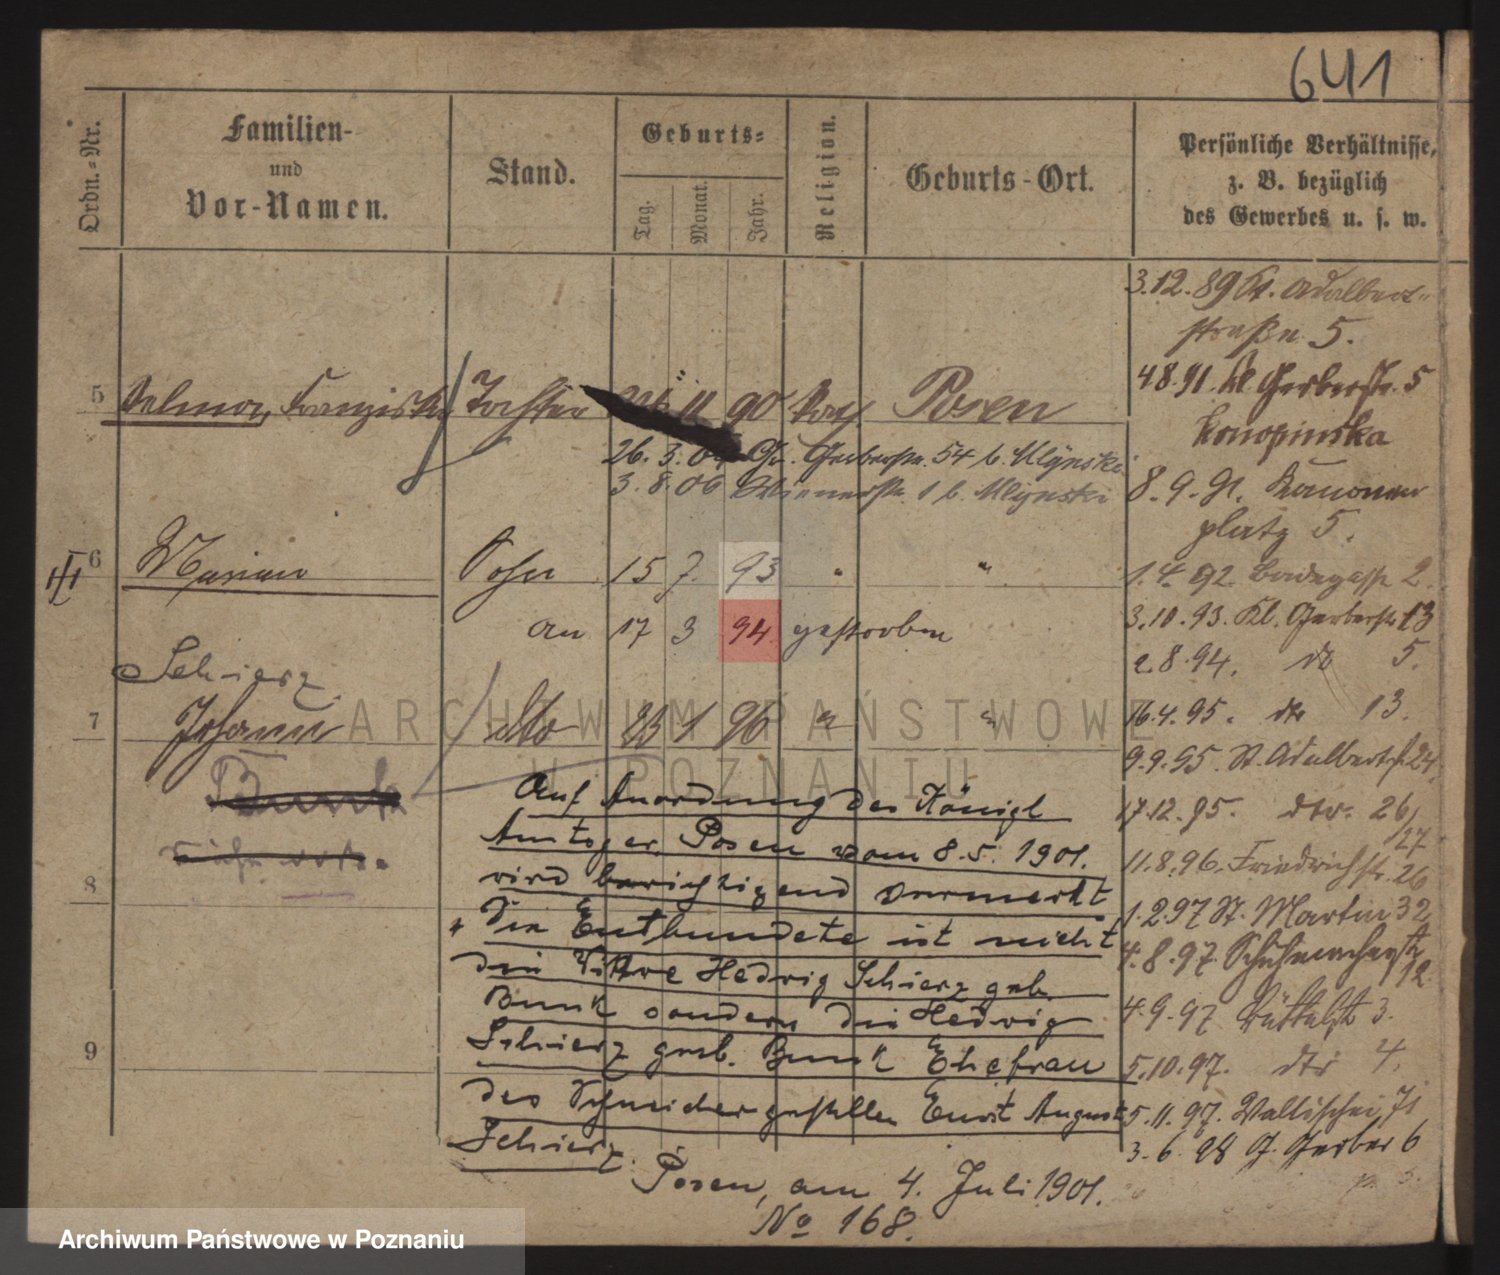 641
Ordn.-Nr.
Familien-
und
Vor-Namen.
Stand.
Geburts-
Tag.
Monat.
Jahr.
Religion.
Geburts-Ort.
Persönliche Verhältnisse,
z. B. bezüglich
des Gewerbes u. s. w.
3.12.89 St. Adalbert-
straße 5.
5 Franziska Tochter 11 90 Posen
4.8.91. Kl. Gerberstr. 5
Konopinska
26. 3. Gr. Gerberstr. 54 b. Mlynski
3. 8. 06 Wienerstr. 1 b. Mlynski
8. 9. 91. Kanonen
platz 5.
6 Marian Sohn 15 7. 93 " "
1. 4. 92. Badegasse 2.
an 17 3 94 gestorben
3.10.93. Kl. Gerberstr. 13
2.8.94. do 5.
Schierz
7 Johann dto 23 1 96 " "
16.4.95. do 13.
9.9.95. St. Adalbertst. 24.
Bunk
Auf Anordnung des Königl
Amtsger. Posen vom 8.5.1901.
wird berichtigend vermerkt
die Entbundete ist nicht
die Wittwe Hedwig Schierz geb.
Bunk sondern die Hedwig
Schierz geb. Bunk Ehefrau
des Schneidergesellen Ernst August
Schierz.
Posen, am 4. Juli 1901.
No 168.
17.12.95. dto. 26/27
11.8.96. Friedrichstr. 26
8
1.2.97 St. Martin 32
4.8.97. Schuhmacherstr. 12
4.9.97 3.
9
5.10.97. dto 4.
5.11.97. Wallischei 71
3.6.98 G. Gerber 6
ARCHIWUM PAŃSTWOWE
W POZNANIU
Archiwum Państwowe w Poznaniu